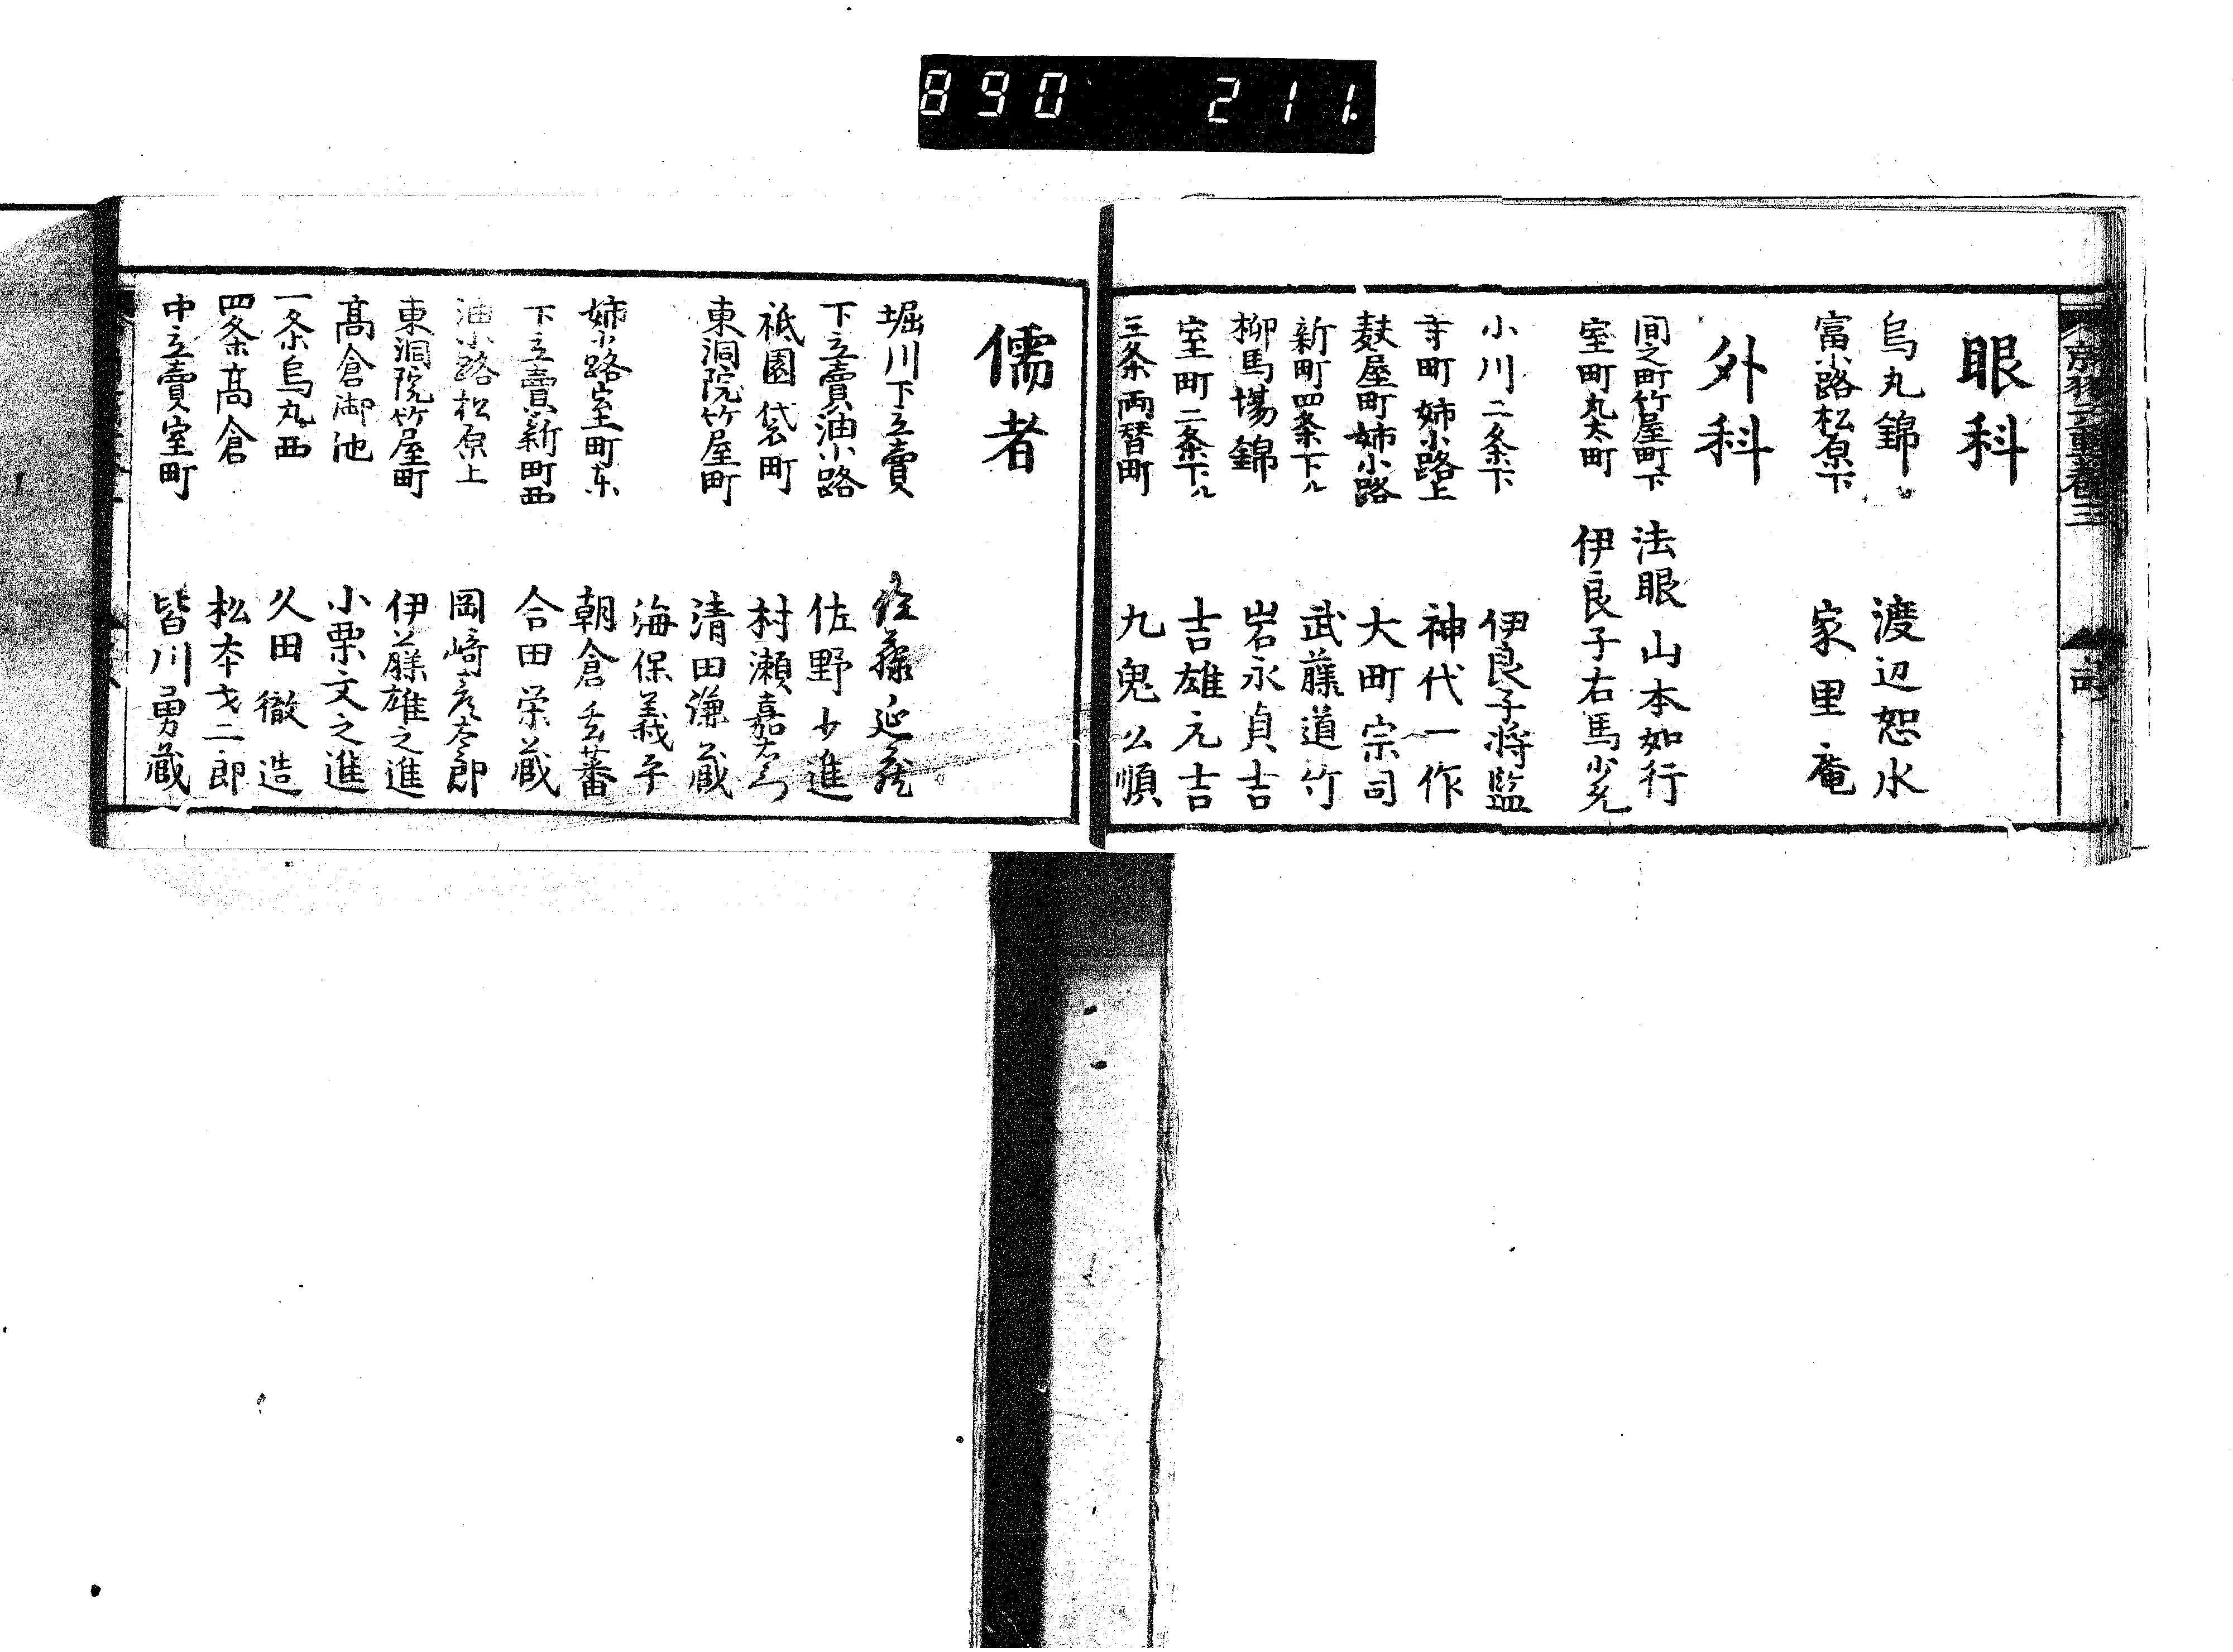 890 211
眼科
烏丸錦 渡辺恕水
富小路松原下 家里庵
外科
間之町竹屋町下 法眼 山本如行
室町丸太町 伊良子右馬少允
小川二条下 伊良子将監
寺町姉小路上 神代一作
麸屋町姉小路 大町宗司
新町四条下ル 武藤道竹
柳馬場錦 岩永貞吉
室町二条下ル 吉雄元吉
三条両替町 九鬼公順
儒者
堀川下立賣 延蔵
下立賣油小路 佐野少進
祗園袋町 村瀬嘉右衛門
東洞院竹屋町 清田謙蔵
海保義平
姉小路室町东 朝倉玄蕃
下立賣新町西 合田栄蔵
油小路松原上 岡﨑彦太郎
東洞院竹屋町 伊藤雄之進
髙倉御池 小栗文之進
一条烏丸西 久田徹造
四条髙倉 松本才二郎
中立賣室町 皆川勇蔵